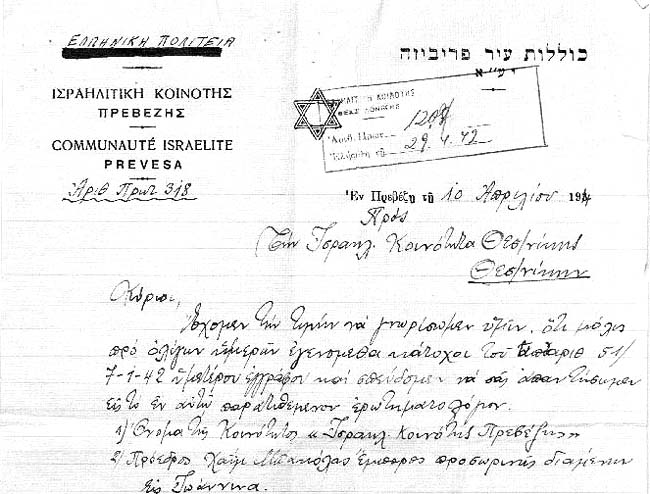 ΕΛΛΗΝΙΚΗ ΠΟΛΙΤΕΙΑ
ΙΣΡΑΗΛΙΤΙΚΗ ΚΟΙΝΟΤΗΣ
ΠΡΕΒΕΖΗΣ
COMMUNAUTÉ ISRAELITE
PREVESA
Ἀριθ Πρωτ 318
כוללות עיר פריביזה
יע״א
ΚΟΙΝΟΤΗΣ
29.4.42
Ἐν Πρεβέζῃ τῇ 10 Ἀπριλίου 194
Πρός
Τήν Ἰσραηλ. Κοινότητα Θεσ/νίκης
Θεσ/νίκην
Κύριοι,
Ἔχομεν τήν τιμήν νά γνωρίσωμεν ὑμῖν, ὅτι μόλις
πρό ὀλίγων ἡμερῶν ἐγενόμεθα κάτοχοι τοῦ ὑπ' ἀριθ 51/
7-1-42 ἡμετέρου ἐγγράφου καί σπεύδομεν νά σᾶς ἀπαντήσωμεν
εἰς τό ἐν αὐτῷ παρατιθέμενον ἐρωτηματολόγιον.
1) Ὄνομα τῆς Κοινότητος «Ἰσραηλ. Κοινότης Πρεβέζης»
2) Πρόεδρος Χαΐμ ἔμπορος προσωρινῶς διαμένων
εἰς Ἰωάννινα.